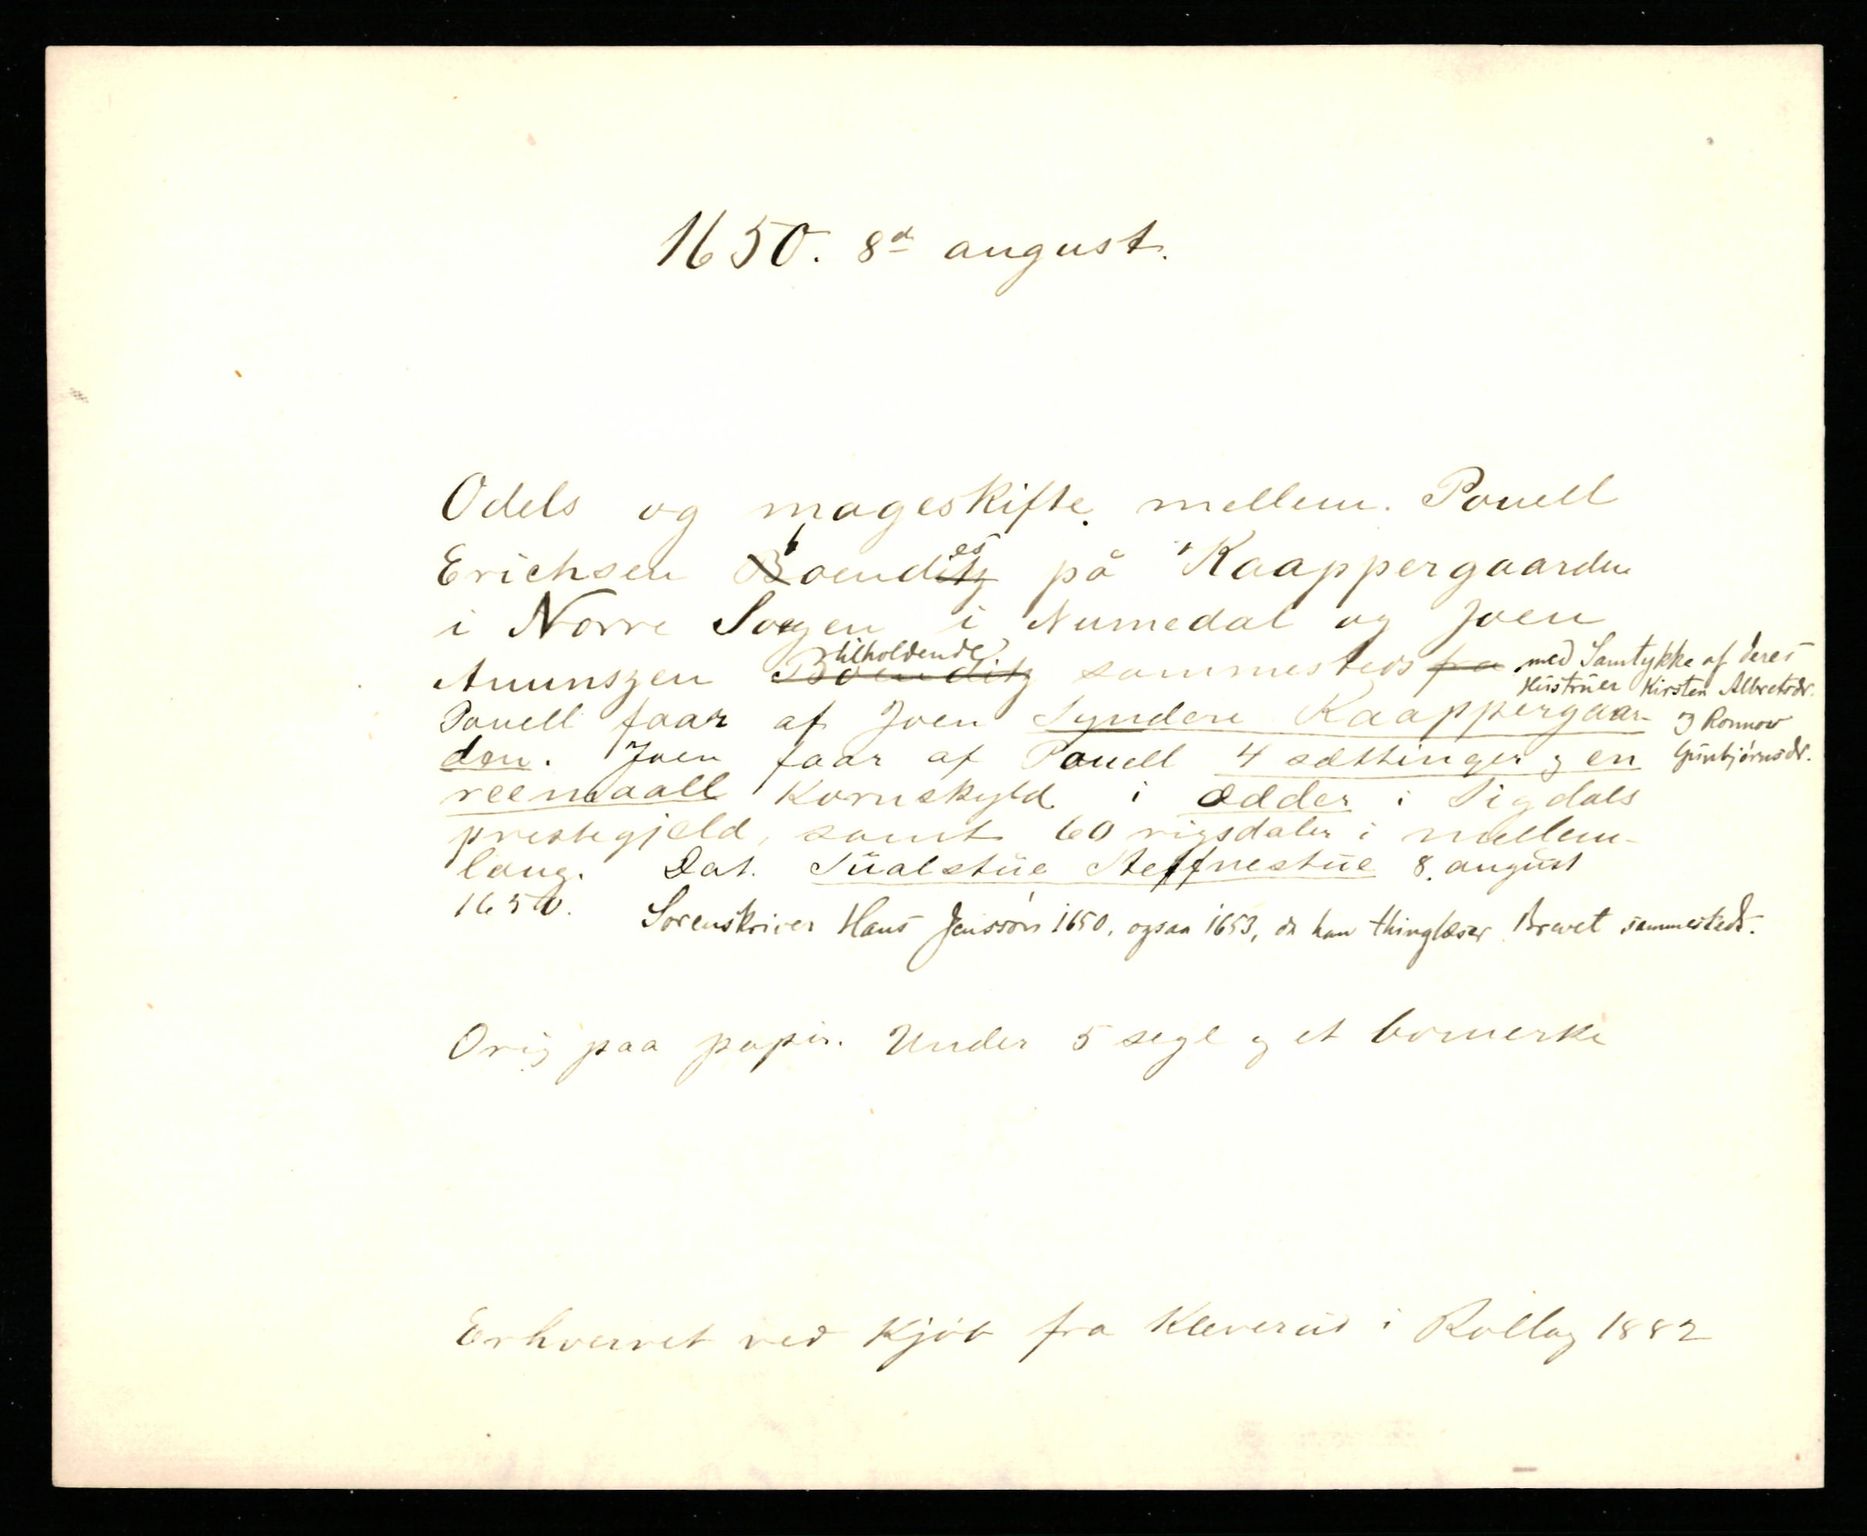 1650. 8d august.
Odels og mageskifte mellem. Pouell
Erichsen boendes på Kaappergaarden
i Norre Sogen i Numedal og Joen
Anunszen tilholdende sammesteds med Samtykke af deres
Hustruer Kirsten Albretsdr.
Pouell faar af Joen Syndere Kaappergaar- og Ronnow
den. Joen faar af Pouell 4 sættinger og en Gunbjørnsdr.
reemaall Kornskyld i Ødder i Sigdals
prestegjeld, samt 60 rigsdaler i mellem-
laug. Dat. Steffnestue 8. august
1650. Sorenskriver Hans Jenssøn 1650, ogsaa 1653, da han thinglæser Brevet sammesteds.
Orig paa papir. Under 5 segl og et bomerke
Erhvervet ved Kjøb fra Kleverud i Rollag 1882